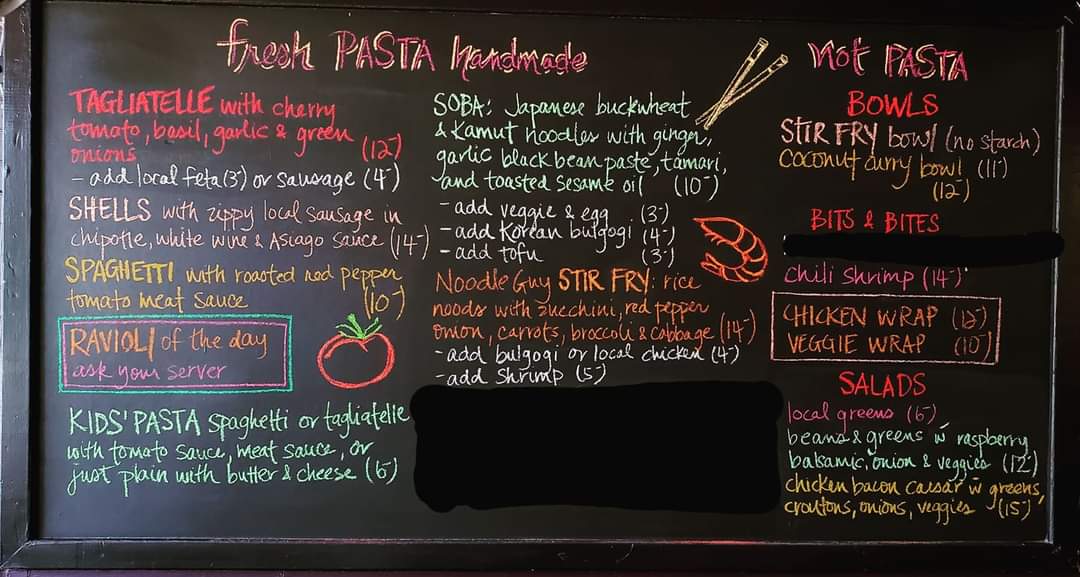 fresh PASTA handmade
TAGLIATELLE with cherry
tomato, basil, garlic & green
onions (12-)
- add local feta (3-) or sausage (4-)
SHELLS with zippy local sausage in
chipotle, white wine & Asiago sauce (14-)
SPAGHETTI with roasted red pepper
tomato meat sauce (10-)
RAVIOLI of the day
ask your server
KIDS' PASTA spaghetti or tagliatelle
with tomato sauce, meat sauce, or
just plain with butter & cheese (6-)
SOBA: Japanese buckwheat
& Kamut noodles with ginger,
garlic black bean paste, tamari,
and toasted sesame oil (10-)
- add veggie & egg (3-)
- add Korean bulgogi (4-)
- add tofu (3-)
Noodle Guy STIR FRY: rice
noods with zucchini, red pepper
onion, carrots, broccoli & cabbage (14-)
- add bulgogi or local chicken (4-)
- add shrimp (5-)
not PASTA
BOWLS
STIR FRY bowl (no starch)
(11-)
coconut curry bowl
(12-)
BITS & BITES
chili shrimp (14-)
CHICKEN WRAP (12-)
VEGGIE WRAP (10-)
SALADS
local greens (6-)
beans & greens w raspberry
balsamic, onion & veggies (12-)
chicken bacon caesar w greens,
croutons, onions, veggies (15-)